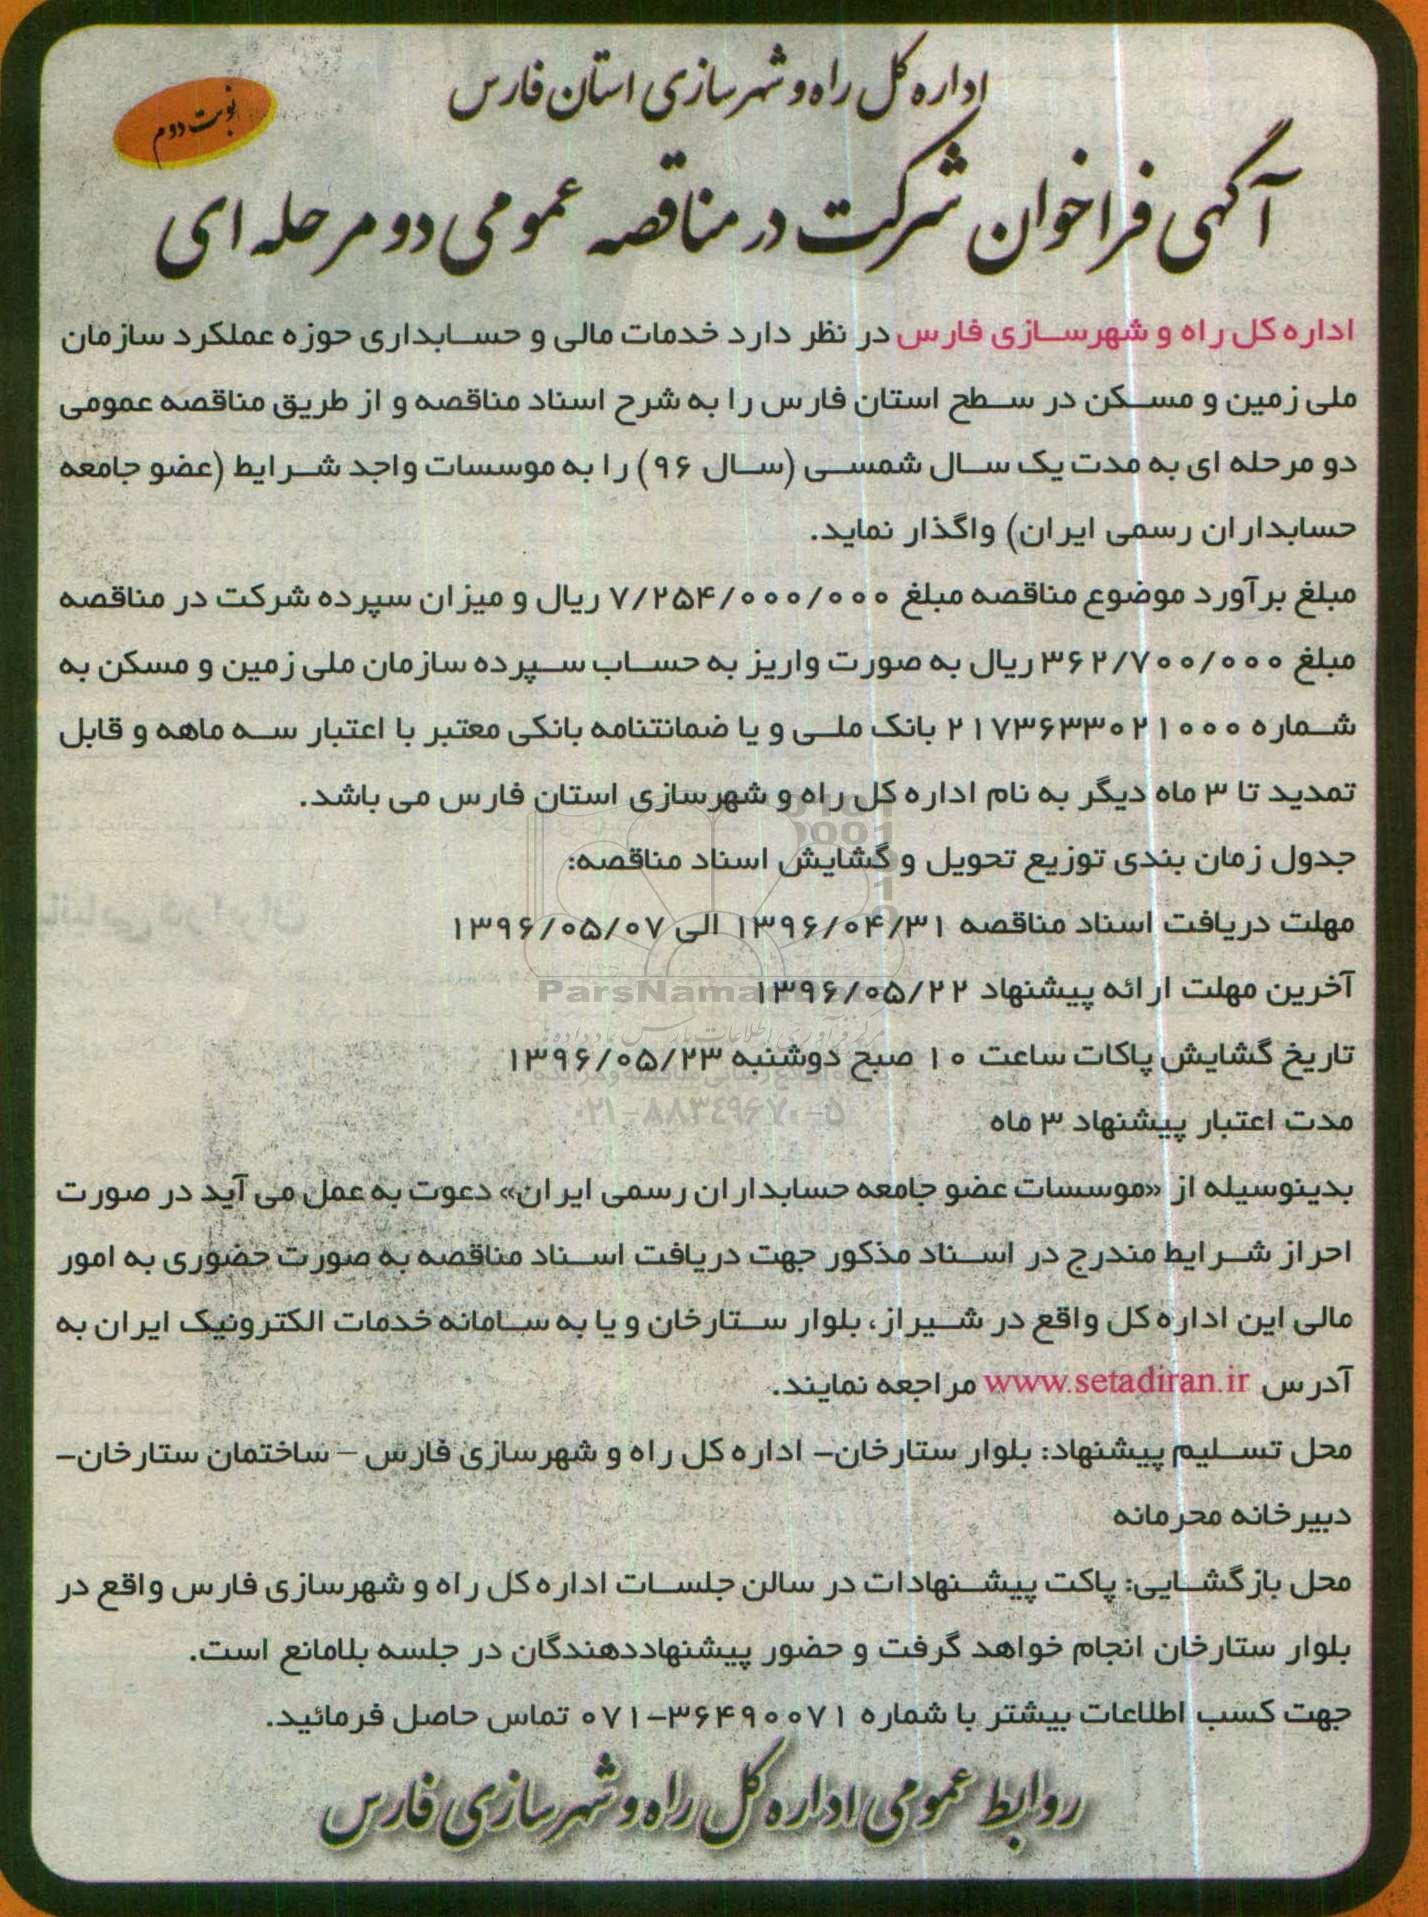 اداره کل راه و شهرسازی استان فارس
نوبت دوم
آگهی فراخوان شرکت در مناقصه عمومی دو مرحله ای
اداره کل راه و شهرسازی فارس در نظر دارد خدمات مالی و حسابداری حوزه عملکرد سازمان
ملی زمین و مسکن در سطح استان فارس را به شرح اسناد مناقصه و از طریق مناقصه عمومی
دو مرحله ای به مدت یک سال شمسی (سال ۹۶) را به موسسات واجد شرایط (عضو جامعه
حسابداران رسمی ایران) واگذار نماید.
مبلغ برآورد موضوع مناقصه مبلغ ۷/۲۵۴/۰۰۰/۰۰۰ ریال و میزان سپرده شرکت در مناقصه
مبلغ ۳۶۲/۷۰۰/۰۰۰ ریال به صورت واریز به حساب سپرده سازمان ملی زمین و مسکن به
شماره ۲۱۷۳۶۳۳۰۲۱۰۰۰ بانک ملی و یا ضمانتنامه بانکی معتبر با اعتبار سه ماهه و قابل
تمدید تا ۳ ماه دیگر به نام اداره کل راه و شهرسازی استان فارس می باشد.
جدول زمان بندی توزیع تحویل و گشایش اسناد مناقصه:
مهلت دریافت اسناد مناقصه ۱۳۹۶/۰۴/۳۱ الی ۱۳۹۶/۰۵/۰۷
آخرین مهلت ارائه پیشنهاد ۱۳۹۶/۰۵/۲۲
ParsNamad
تاریخ گشایش پاکات ساعت ۱۰ صبح دوشنبه ۱۳۹۶/۰۵/۲۳
۰۲۱-۸۸۳۴۹۶۷۰-۵
مدت اعتبار پیشنهاد ۳ ماه
بدینوسیله از «موسسات عضو جامعه حسابداران رسمی ایران» دعوت به عمل می آید در صورت
احراز شرایط مندرج در اسناد مذکور جهت دریافت اسناد مناقصه به صورت حضوری به امور
مالی این اداره کل واقع در شیراز، بلوار ستارخان و یا به سامانه خدمات الکترونیک ایران به
آدرس www.setadiran.ir مراجعه نمایند.
محل تسلیم پیشنهاد: بلوار ستارخان- اداره کل راه و شهرسازی فارس – ساختمان ستارخان-
دبیرخانه محرمانه
محل بازگشایی: پاکت پیشنهادات در سالن جلسات اداره کل راه و شهرسازی فارس واقع در
بلوار ستارخان انجام خواهد گرفت و حضور پیشنهاددهندگان در جلسه بلامانع است.
جهت کسب اطلاعات بیشتر با شماره ۰۷۱-۳۶۴۹۰۰۷۱ تماس حاصل فرمائید.
روابط عمومی اداره کل راه و شهرسازی فارس